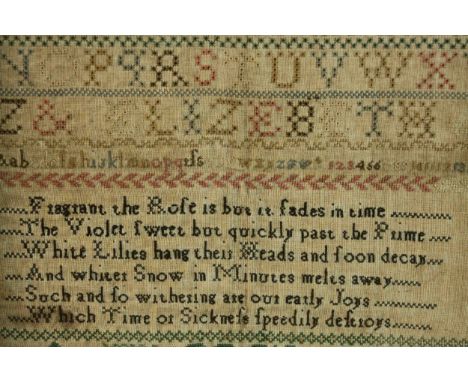 N O P Q R S T U V W X
Z & ELIZEBETH
Fragrant the Rose is but it fades in time
The Violet sweet but quickly past the Prime
White Lilies hang their Heads and soon decay
And whiter Snow in Minutes melts away
Such and so withering are our early Joys
Which Time or Sickness speedily destroys